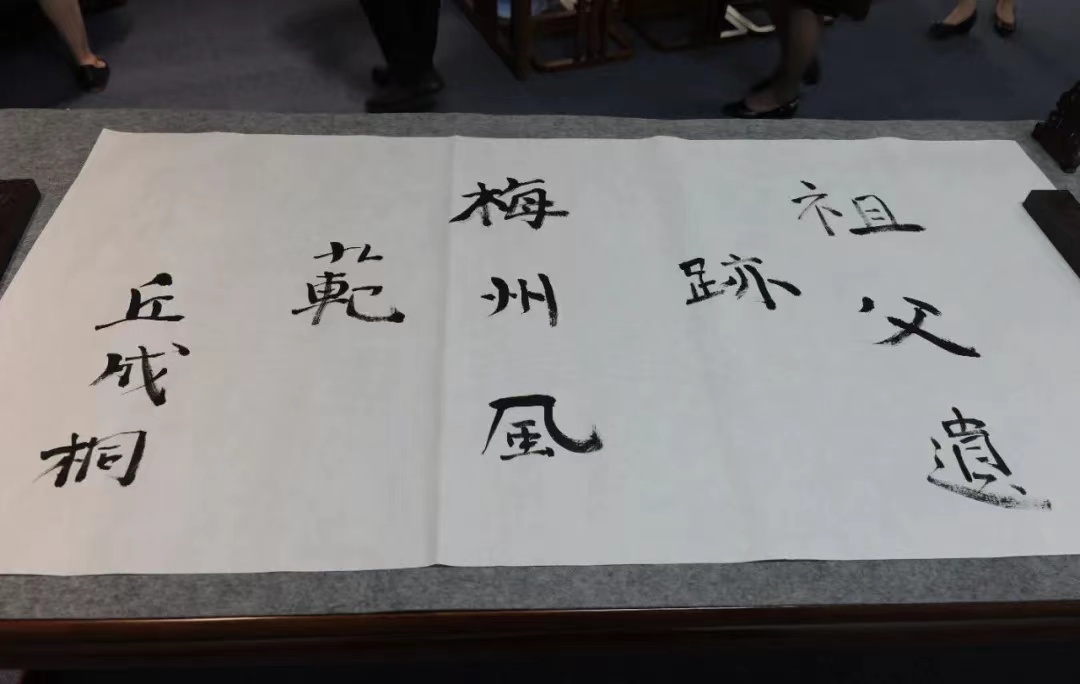 祖父遺
跡
梅州風
範
丘成桐